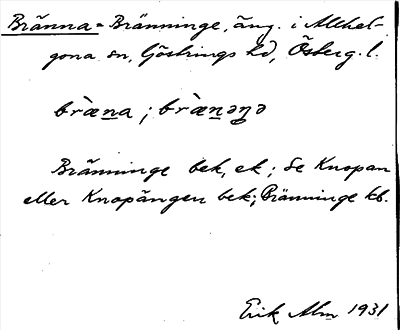 Bränna = Bränninge, äng. i Allhel-
gona sn, Göstrings hd, Österg. l.
bræ̀na ; bræ̀nəŋə
Bränninge bek, ek; Se Knopan
eller Knopängen bek; Bränninge kb.
Erik Alm 1931